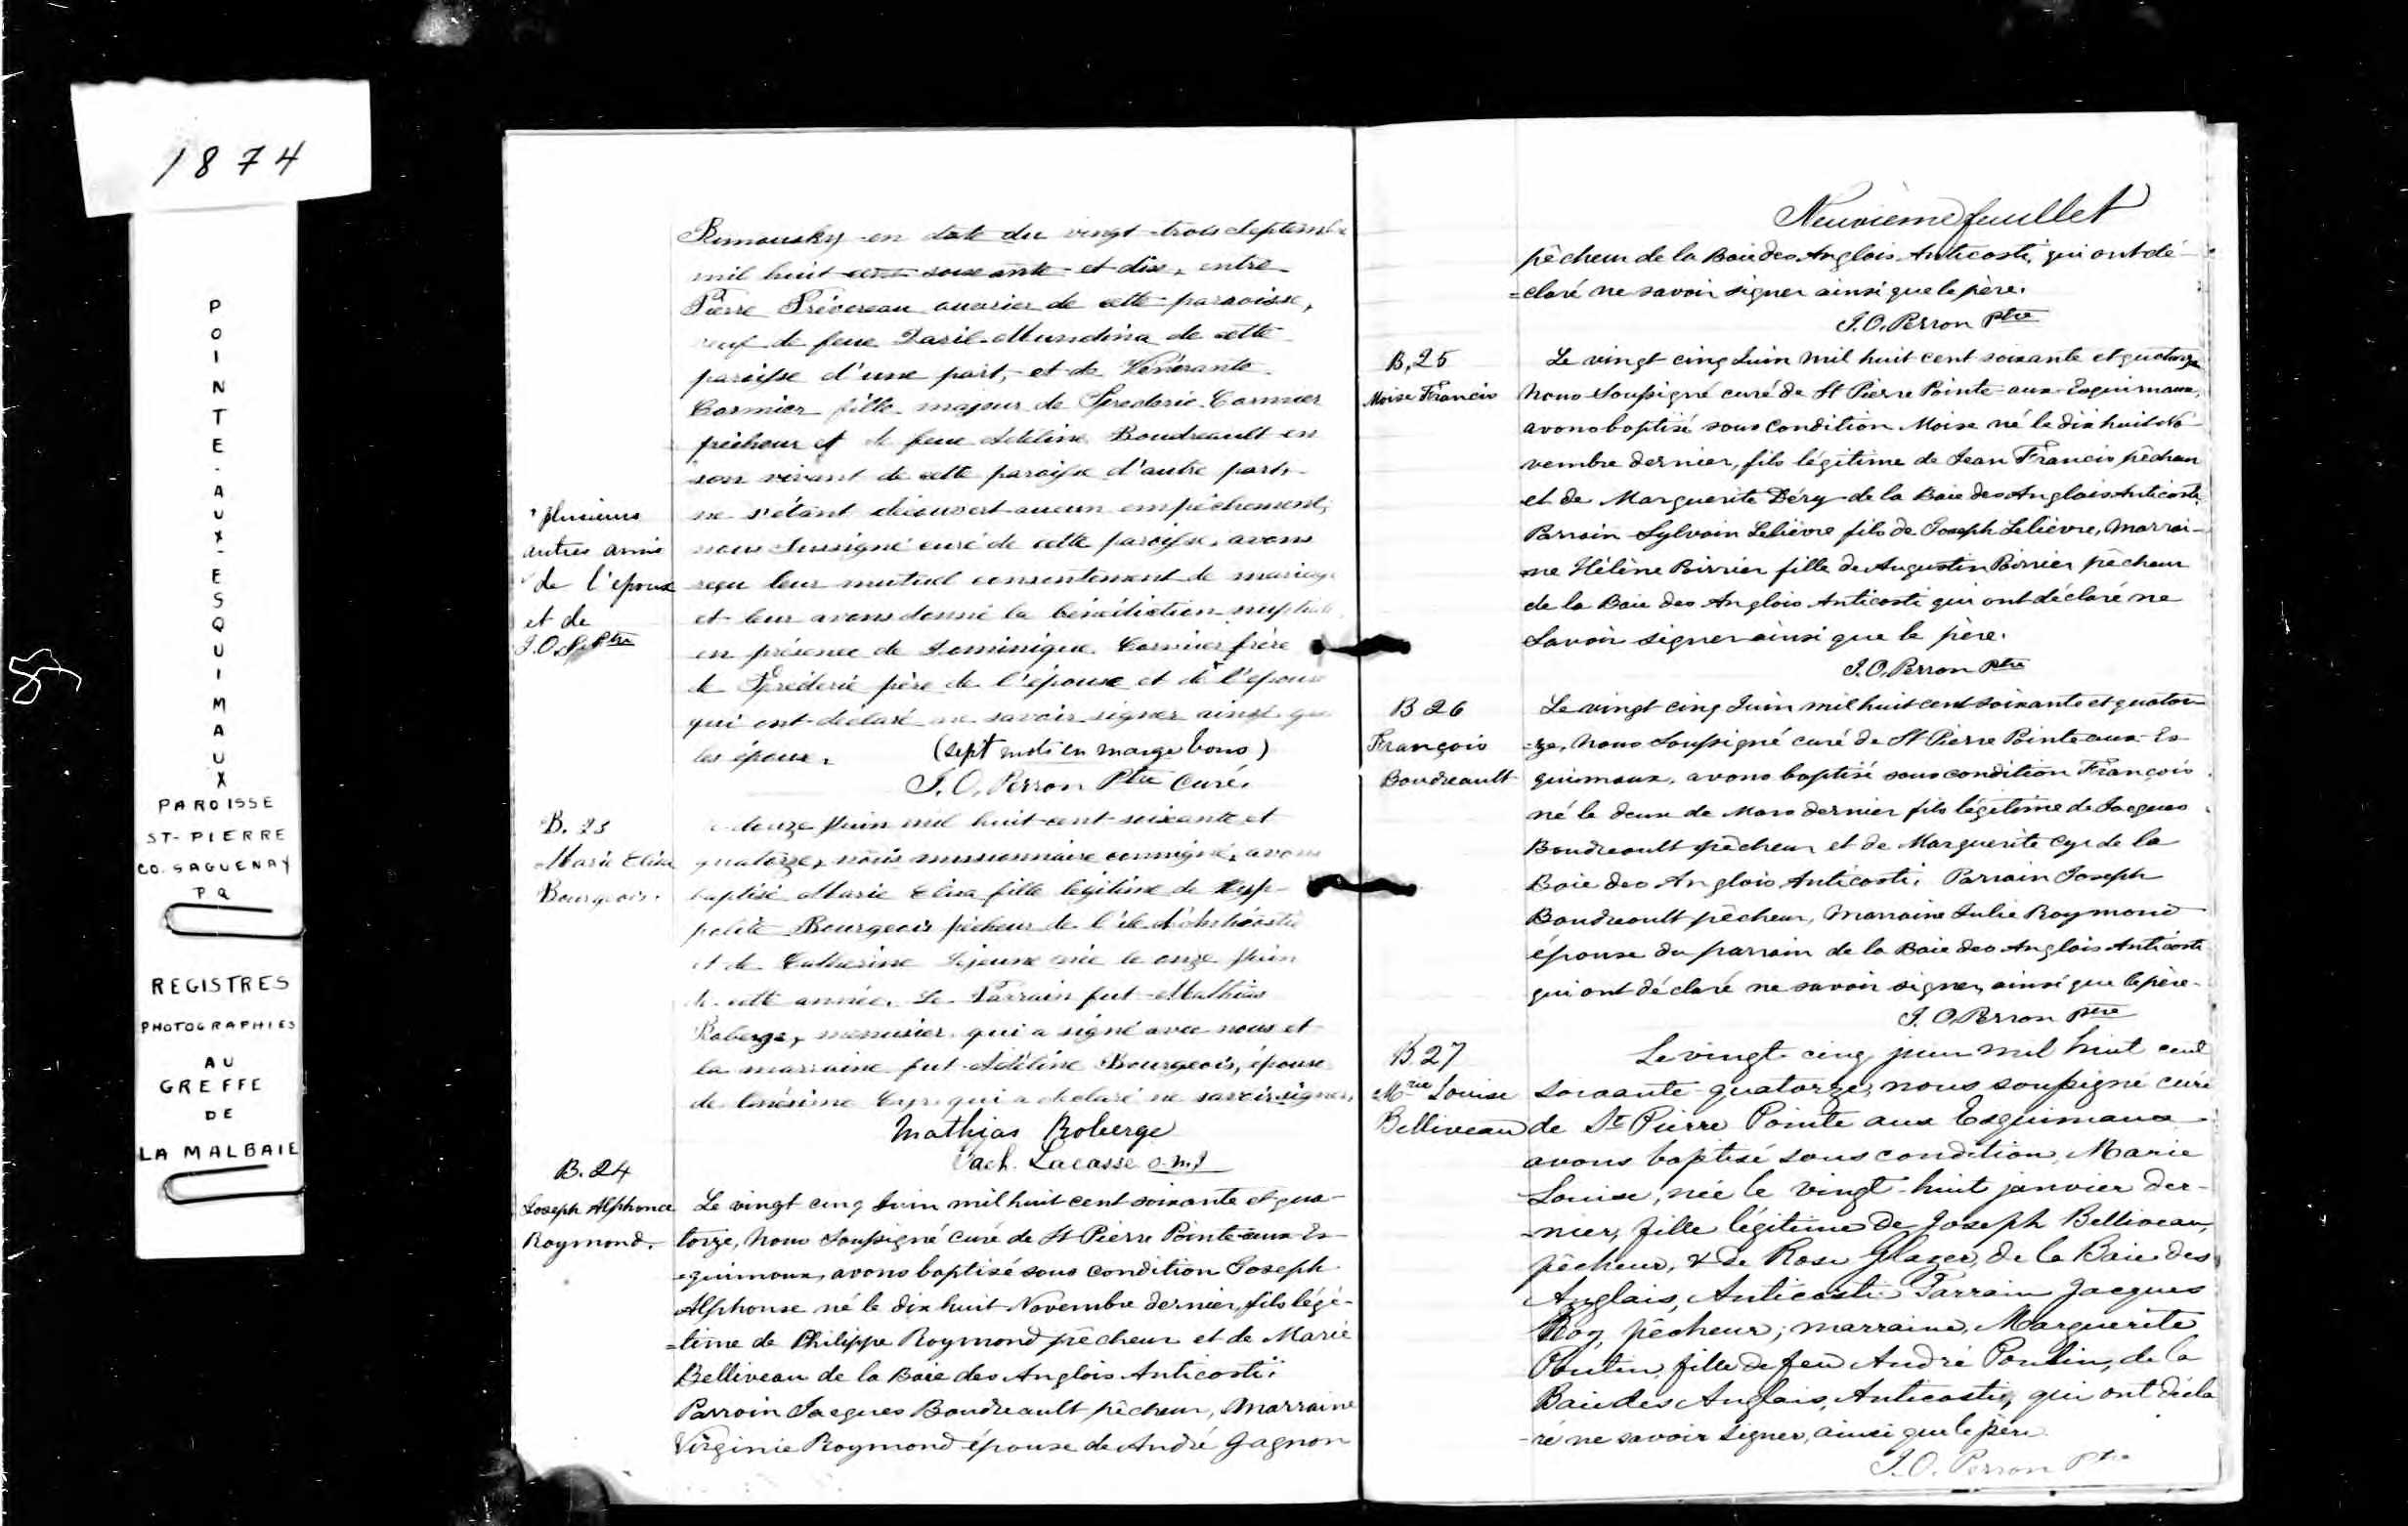 1874
POINTE-AUX-ESQUIMAUX
PAROISSE
ST-PIERRE
CO. SAGUENAY
PQ
REGISTRES
PHOTOGRAPHIES
AU
GREFFE
DE
LA MALBAIE
Rimousky en date du vingt-trois Septembre
mil huit cent soixante et dix, entre
Pierre ouvrier de cette paroisse,
veuf de feue de cette
paroisse d'une part, et de Vénérante
Cormier fille majeur de Frederic Cormier
pêcheur et de feue Adéline Boudreault en
son vivant de cette paroisse d'autre part,
ne s'étant découvert aucun empêchement,
nous soussigné curé de cette paroisse, avons
reçu leur mutuel consentement de mariage
et leur avons donné la bénédiction nuptiale
en présence de Dominique Cormier frère
de Fréderic père de l'épouse et de l'épouse
qui ont déclaré ne savoir signer ainsi que
les époux. (sept mots en marge bons)
J. O. Perron Ptre Curé.
plusieurs
autres amis
de l'epoux
et de
J. O. P. Ptre
B. 23
Marie Elisa
Bourgeois.
douze Juin mil huit-cent-soixante et
quatorze, nous missionnaire soussigné, avons
baptisé Marie Elisa fille légitime de Hyp-
polite Bourgeois pêcheur de l'île d'Anticosti
et de Catherine Lejeune née le onze Juin
de cette année. Le Parrain fut Mathias
Roberge, menuisier qui a signé avec nous et
la marraine fut Adéline Bourgeois, épouse
de Onésime Cyr qui a déclaré ne savoir signer.
Mathias Roberge
Zach. Lacasse o.m.I
B. 24
Joseph Alphonce
Raymond.
Le vingt cinq Juin mil huit cent soixante et qua-
torze, Nous Soussigné Curé de St Pierre Pointe-aux-Es-
=quimaux, avons baptisé sous condition Joseph
Alphonse né le dix huit Novembre dernier, fils légi-
=time de Philippe Raymond pêcheur et de Marie
Belliveau de la Baie des Anglais Anticosti.
Parrain Jacques Boudreault pêcheur, Marraine
Virginie Raymond épouse de André Gagnon
Neuvième feuillet
pêcheur de la Baie des Anglais Anticosti, qui ont dé-
=claré ne savoir signer ainsi que le père.
J. O. Perron Ptre
B, 25
Moise Francis
Le vingt cinq Juin mil huit cent soixante et quatorze
Nous Soussigné curé de St Pierre Pointe-aux-Esquimaux,
avons baptisé sous condition Moise né le dix huit No-
vembre dernier, fils légitime de Jean Francis pêcheur
et de Marguerite Déry de la Baie des Anglais Anticosti,
Parrain Sylvain Lelièvre fils de Joseph Lelièvre, Marrai-
ne Hélène Poirrier fille de Augustin Poirrier pêcheur
de la Baie des Anglais Anticosti qui ont déclaré ne
Savoir signer ainsi que le père.
J. O. Perron Ptre
B 26
François
Boudreault
Le vingt cinq Juin mil huit cent soixante et quator-
-ze, Nous Soussigné curé de St Pierre Pointe aux Es-
quimaux, avons baptisé sous condition François
né le deux de Mars dernier fils légitime de Jacques
Boudreault pêcheur et de Marguerite Cyr de la
Baie des Anglais Anticosti. Parrain Joseph
Boudreault pêcheur, Marraine Julie Raymond
épouse du parrain de la Baie des Anglais Anticosti
qui ont déclaré ne savoir signer, ainsi que le père.
J. O. Perron ptre
B 27
Mrie Louise
Belliveau
Le vingt-cinq juin mil huit cent
soixante quatorze, nous soussigné curé
de St Pierre Pointe aux Esquimaux
avons baptisé sous condition, Marie
Louise, née le vingt-huit janvier der-
-nier, fille légitime de Joseph Belliveau,
pêcheur, & de Rose Glazer, de la Baie des
Anglais, Anticosti. Parrain Jacques
Roy, pêcheur; marraine, Marguerite
Poulin, fille de feu André Poulin, de la
Baie des Anglais, Anticosti, qui ont décla
-ré ne savoir signer, ainsi que le père.
J. O. Perron Ptre